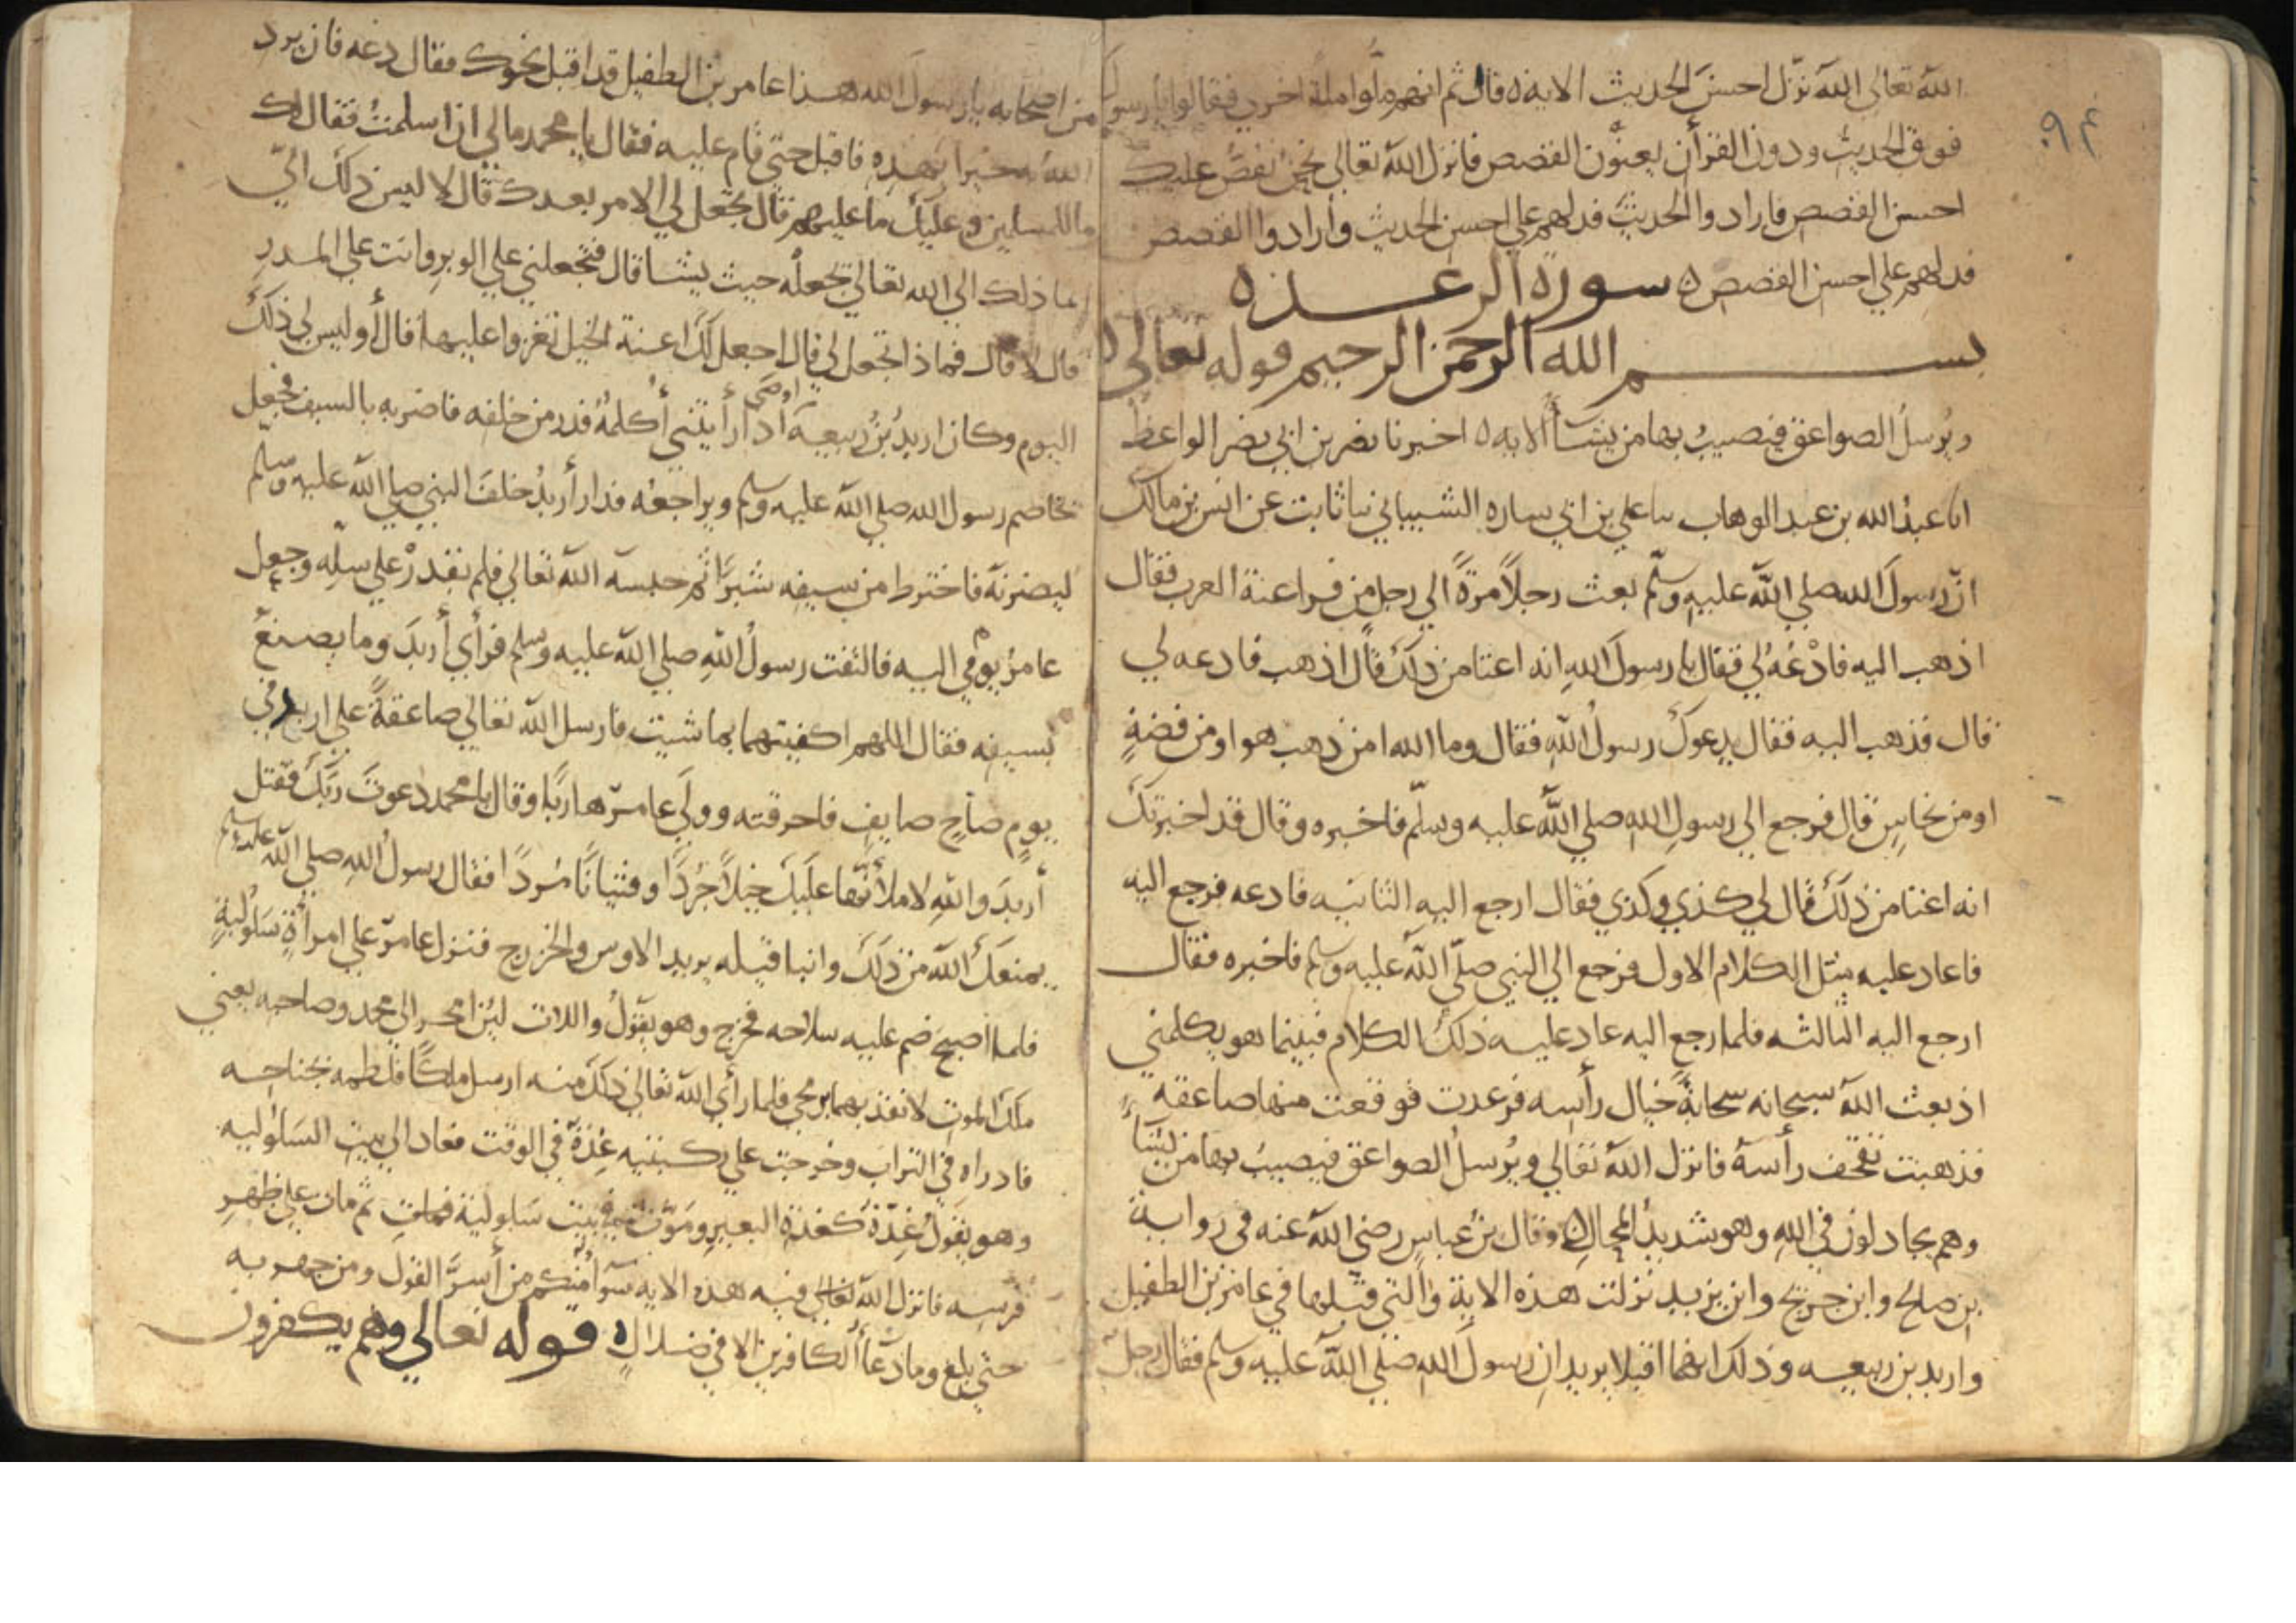 ٩٤
الله تعالى الله نزّل احسن الحديث الايه ٥ قال ثم انهم ملّوا ملة اخري فقالوا يا رسول
فوق الحديث ودون القرأن يعنون القصص فانزل الله تعالى نحن نقصّ عليك
احسن القصص فارادوا الحديث فدلهم علي احسن الحديث وأرادوا القصص
فدلهم علي احسن القصص ٥ سورة الرعد ٥
بسم الله الرحمن الرحيم قوله تعالى
ويُرسلُ الصواعق فيصيبُ بها من يشآ الايه ٥ اخبرنا نصر بن ابي نصر الواعظ
انا عبد الله بن عبد الوهاب ثنا علي بن ابي ساره الشيباني ثنا ثابت عن انس بن مالك
انّ رسولَ الله صلي الله عليه وسلّم بعث رجلاً مرّةً الي رجلٍ من فراعنة العرب فقال
اذهب اليه فادْعُهُ لي فقال يا رسولَ الله انه اعتا من ذلك قال اذهب فادعه لي
قال فذهب اليه فقال يدعوك رسولُ اللهِ فقال وما الله امن ذهب هو او من فضةٍ
او من نحاسٍ قال فرجع الي رسولِ اللهِ صلي الله عليه وسلّم فاخبره وقال قد اخبرتك
انه اعتا من ذلك قال لي كذي وكذي فقال ارجع اليه الثانيه فادعه فرجع اليه
فاعاد عليه مثل الكلام الاول فرجع الي النبي صلّي الله عليه وسلم فاخبره فقال
ارجع اليه الثالثه فلما رجع اليه عاد عليه ذلك الكلام فبينما هو يكلمني
اذ بعث الله سبحانه سحابةً حيال رأسه فرعدت فوقعت منها صاعقه
فذهبت بقحف رأسه فانزل الله تعالي ويُرسلُ الصواعق فيصيبُ بها من يشآ
وهم يجادلون في اللهِ وهو شديدُ المحالِ ٥ وقال بن عباسٍ رضي الله عنه في رواية
بن صالح وابن جريج وابن يزيد نزلت هذه الاية والتي قبلها في عامر بن الطفيل
واربد بن ربيعه وذلك انهما اقبلا يريدان رسولَ الله صلي الله عليه وسلم فقال رجل
من اصحابه يا رسولَ الله هذا عامر بن الطفيل قد اقبل نحوك فقال دعه فان يرد
الله به خيرا يهده فاقبل حتي قام عليه فقال يا محمد مالي ان اسلمتُ فقال لك
ما للمسلمين وعليك ما عليهم قال تجعل لي الامر بعدك قال لا ليس ذلك اليّ
انما ذلك الي الله تعالي يجعلُه حيث يشا قال فتجعلني علي الوبرِ وانت علي المدرِ
قال لا قال فماذا تجعل لي قال اجعل لكَ اعنة الخيل تغزوا عليها قال أو ليس لي ذلك
اوصي
اليوم وكان اربدُ بنُ ربيعه اذا رأيتني أكلمهُ فدر من خلفه فاضربه بالسيف فجعل
يخاصم رسول الله صلي الله عليه وسلم ويراجعُه فدار أربدُ خلفَ النبي صلي الله عليه وسلم
ليضربَهُ فاخترط من سيفه شبرًا ثم حبسه الله تعالي فلم يقدرْ علي سلّه وجعل
عامرُ يومي اليه فالتفت رسولُ اللهِ صلي الله عليه وسلم فرأي أربدَ وما يصنعُ
بسيفه فقال اللهم اكفينهما بما شيت فارسل الله تعالي صاعقةً علي اربد في
يومٍ صاحٍ صايفٍ فاحرقته وولّي عامرٌ هاربًا وقال يا محمد دعوتَ ربَّك فقتل
أربدَ واللهِ لاملأنّها عليكَ خيلاً جُردًا وفتيانًا مُردًا فقال رسولُ اللهِ صلي الله عليه وسلم
يمنعكَ الله من ذلكَ وابنا قيله يريد الاوس والخزرج فنزل عامرٌ علي امرأةٍ سَلوليةٍ
فلما اصبح ضم عليه سلاحه فخرج وهو يقولُ واللات لئن اصحر الي محمد وصاحبه يعني
ملك الموتِ لانفذ بهما برمحي فلما رأي الله تعالي ذلك منه ارسل ملكًا فلطمه بجناحه
فادراه في التراب وخرجت علي ركبتيه غدّةٌ في الوقت فعاد الي بيت السَلوليه
وهو يقولُ غدّة كغدة البعيرِ وموت في بيت سَلولية فمات ثم مات علي ظهرِ
فرسه فانزل الله تعالي فيه هذه الايه سوآ منكم من أسرَّ القول ومن جهر به
حتي بلغ وما دعآ الكافرين الا في ضلالٍ ٥ قوله تعالي وهم يكفرون